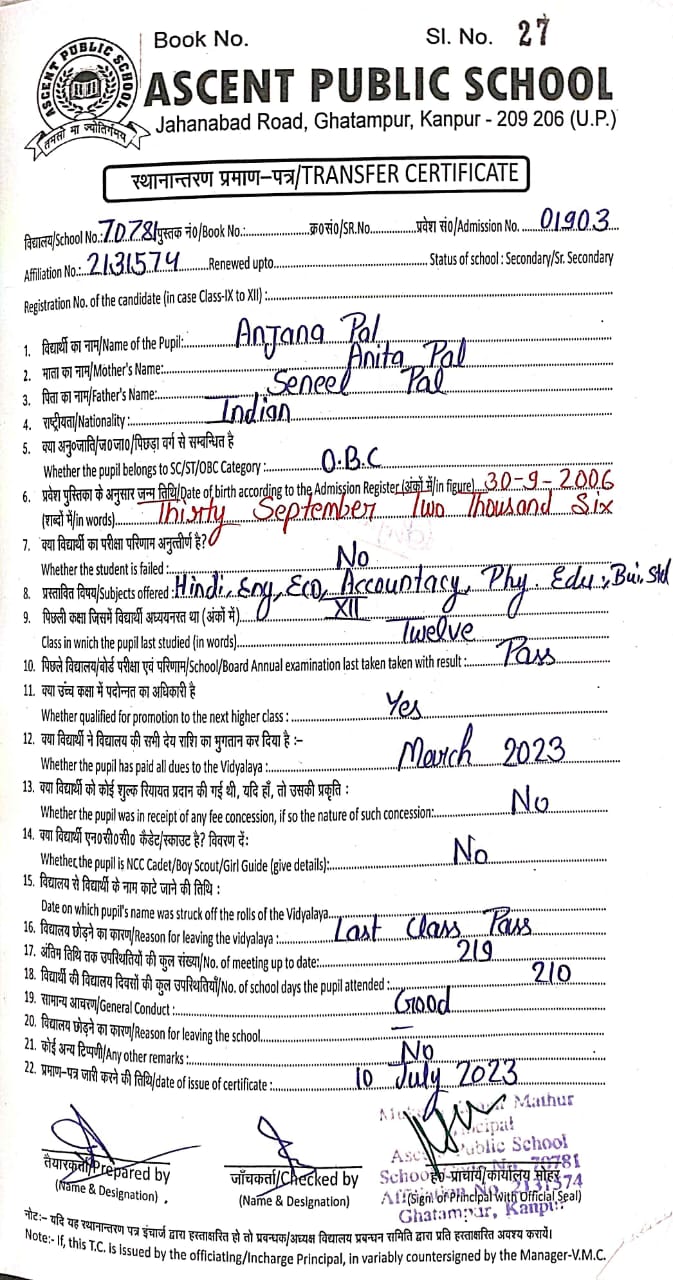 Book No. Sl. No. 27
ASCENT PUBLIC SCHOOL
ASCENT PUBLIC SCHOOL
तमसो मा ज्योतिर्गमय
Jahanabad Road, Ghatampur, Kanpur - 209 206 (U.P.)
स्थानान्तरण प्रमाण–पत्र/TRANSFER CERTIFICATE
विद्यालय/School No.: 70781 पुस्तक नं0/Book No.:..........क्र0सं0/SR.No..........प्रवेश सं0/Admission No. .....01903
Affiliation No.: 2131574 Renewed upto.......... Status of school : Secondary/Sr. Secondary
Registration No. of the candidate (in case Class-IX to XII) :..........
1. विद्यार्थी का नाम/Name of the Pupil:.......... Anjana Pal
2. माता का नाम/Mother's Name:.......... Anita Pal
3. पिता का नाम/Father's Name:.......... Seneel Pal
4. राष्ट्रीयता/Nationality :.......... Indian
5. क्या अनु०जाति/ज०जा०/पिछड़ा वर्ग से सम्बन्धित है
Whether the pupil belongs to SC/ST/OBC Category :.......... O.B.C
6. प्रवेश पुस्तिका के अनुसार जन्म तिथि/Date of birth according to the Admission Register (अंकों में/in figure) 30-9-2006
(शब्दों में/in words).......... Thirty September Two Thousand Six
7. क्या विद्यार्थी का परीक्षा परिणाम अनुत्तीर्ण है?
Whether the student is failed :.......... No
8. प्रस्तावित विषय/Subjects offered : Hindi, Eng, Eco, Accountacy, Phy. Edu:, Bui. Std
9. पिछली कक्षा जिसमें विद्यार्थी अध्ययनरत था (अंकों में).......... XII
Class in wnich the pupil last studied (in words).......... Twelve
10. पिछले विद्यालय/बोर्ड परीक्षा एवं परिणाम/School/Board Annual examination last taken taken with result :.......... Pass
11. क्या उच्च कक्षा में पदोन्नत का अधिकारी है
Whether qualified for promotion to the next higher class :.......... Yes
12. क्या विद्यार्थी ने विद्यालय की सभी देय राशि का भुगतान कर दिया है :–
Whether the pupil has paid all dues to the Vidyalaya :.......... March 2023
13. क्या विद्यार्थी को कोई शुल्क रियायत प्रदान की गई थी, यदि हाँ, तो उसकी प्रकृति :
Whether the pupil was in receipt of any fee concession, if so the nature of such concession:.......... No
14. क्या विद्यार्थी एन0सी0सी0 कैडेट/स्काउट है? विवरण दें:
Whether, the pupil is NCC Cadet/Boy Scout/Girl Guide (give details):.......... No
15. विद्यालय से विद्यार्थी के नाम काटे जाने की तिथि :
Date on which pupil's name was struck off the rolls of the Vidyalaya..........
16. विद्यालय छोड़ने का कारण/Reason for leaving the vidyalaya :.......... Last Class Pass
17. अंतिम तिथि तक उपस्थितियों की कुल संख्या/No. of meeting up to date:.......... 219
18. विद्यार्थी की विद्यालय दिवसों की कुल उपस्थितियाँ/No. of school days the pupil attended :.......... 210
19. सामान्य आचरण/General Conduct :.......... Good
20. विद्यालय छोड़ने का कारण/Reason for leaving the school.......... –
21. कोई अन्य टिप्पणी/Any other remarks :.......... No
22. प्रमाण–पत्र जारी करने की तिथि/date of issue of certificate :.......... 10 July 2023
Mathur
Principal
Ascent Public School
School No. 70781
Affiliation No. 2131574
Ghatampur, Kanpur
तैयारकर्ता/Prepared by जाँचकर्ता/Checked by ह0–प्राचार्य/कार्यालय मोहर
(Name & Designation) . (Name & Designation) (Sign of Principal with Official Seal)
नोट:– यदि यह स्थानान्तरण पत्र इंचार्ज द्वारा हस्ताक्षरित हो तो प्रबन्धक/अध्यक्ष विद्यालय प्रबन्धन समिति द्वारा प्रति हस्ताक्षरित अवश्य करायें।
Note:- If, this T.C. is issued by the officiating/Incharge Principal, in variably countersigned by the Manager-V.M.C.